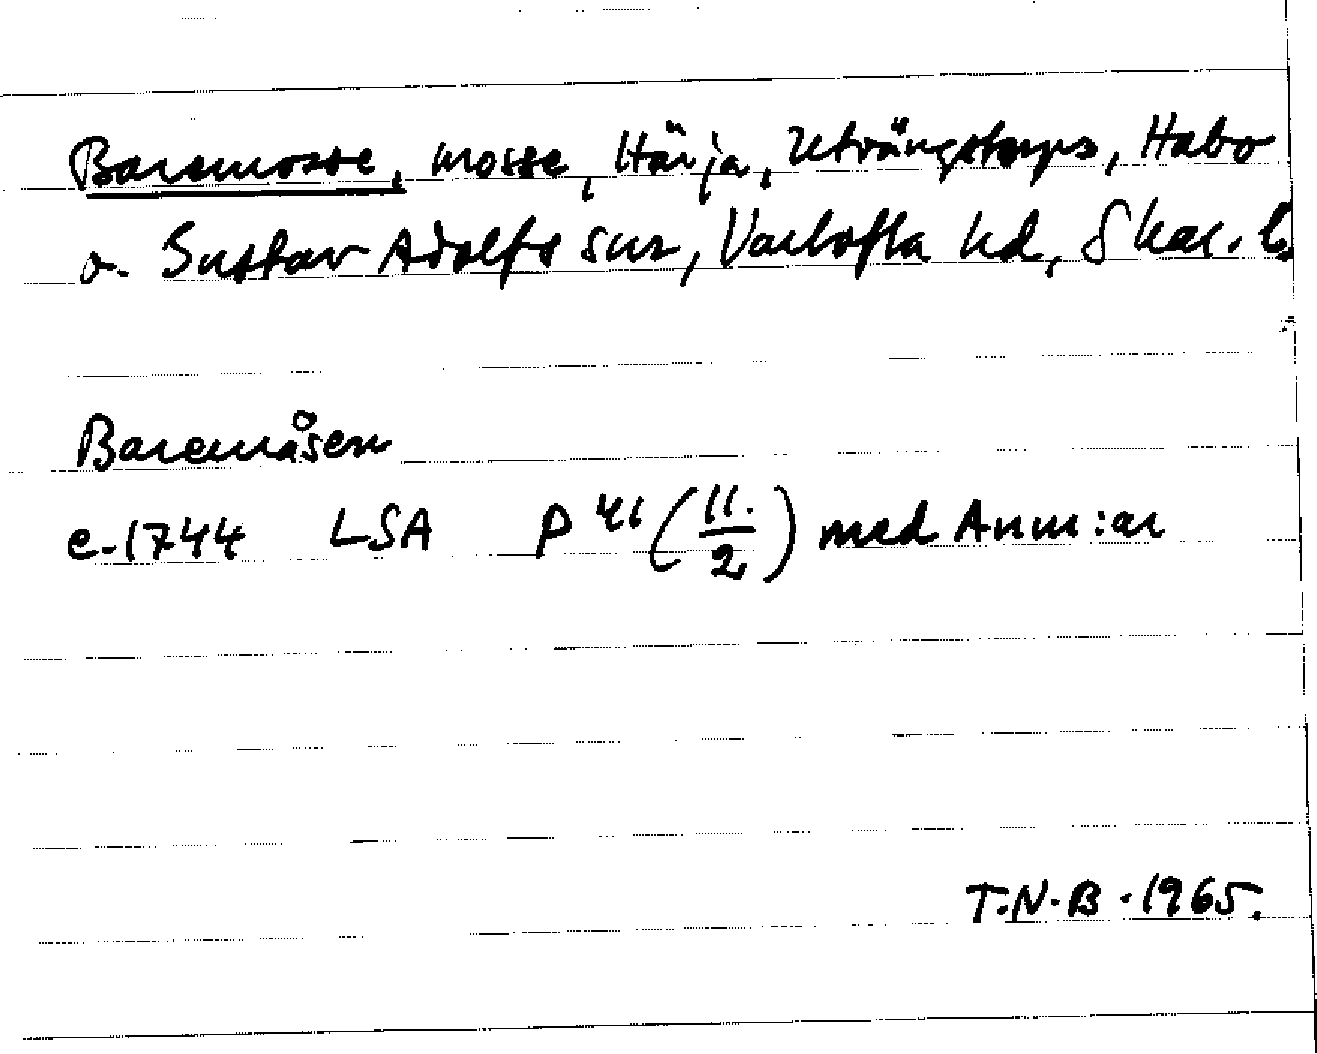 Baremosse, mosse, Härja, Utvängstorps, Habo
o. Gustav Adolfs snr, Vartofta hd, Skar. l.
Baremåsen
e. 1744 LSA P 41 (11./2) med Anm:ar
T.N.B. 1965.